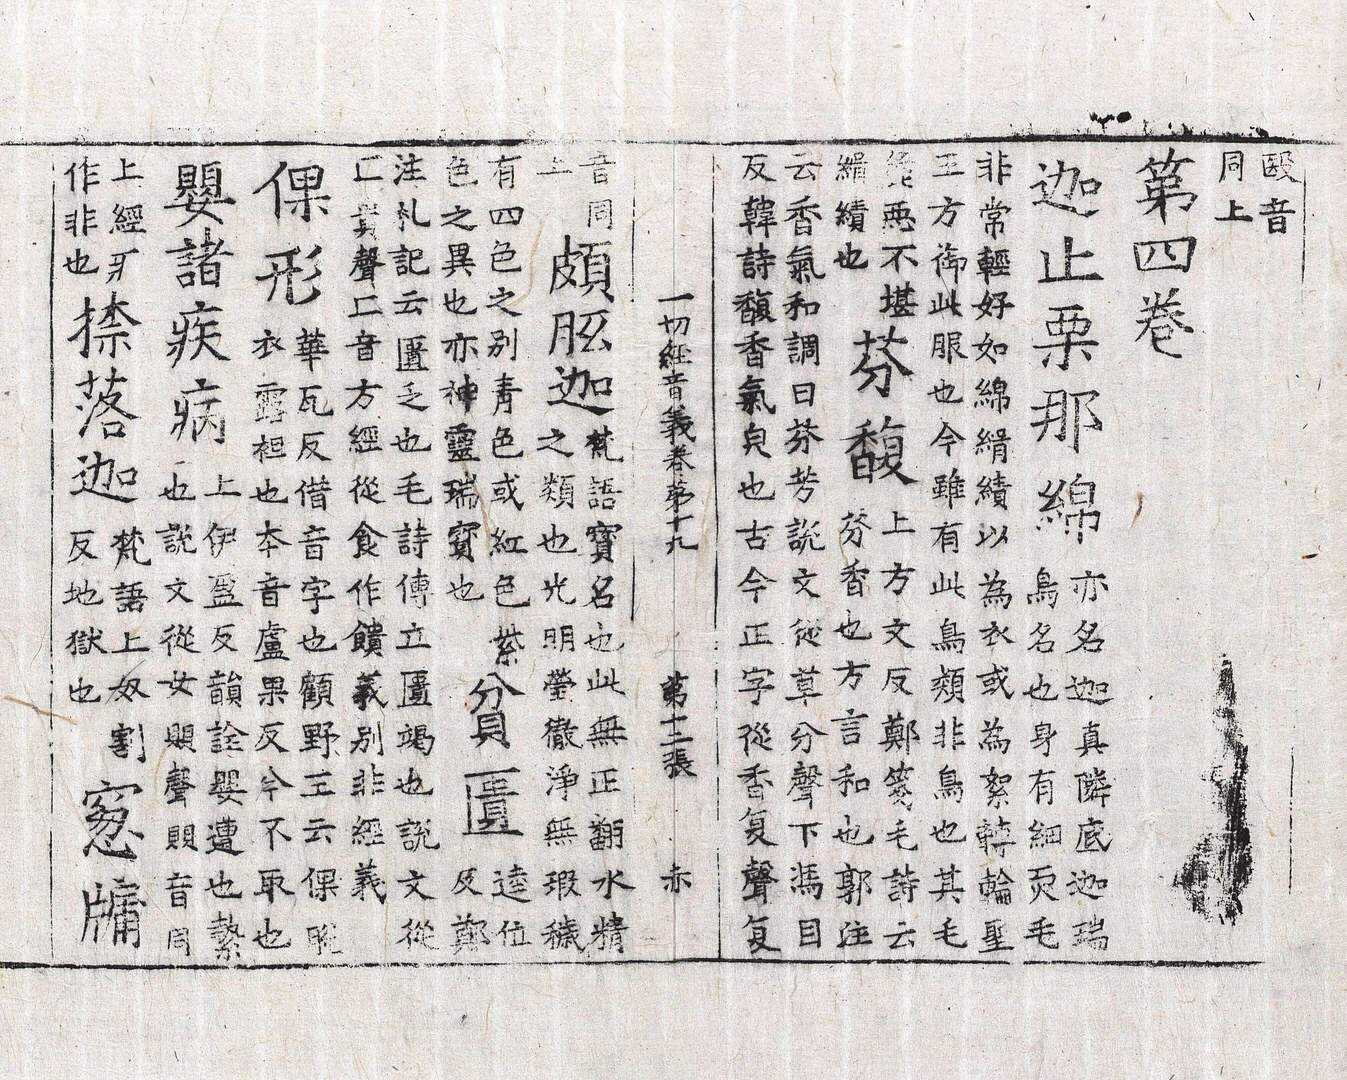 毆音
同上
第四卷
迦止栗那綿亦名迦真隣底迦瑞
鳥名也身有細耎毛
非常輕好如綿緝績以為衣或為絮轉輪聖
王方御此服也今雖有此鳥類非鳥也其毛
麁惡不堪
緝績也
芬馥上方文反鄭箋毛詩云
芬香也方言和也郭注
云香氣和調曰芬芳說文從草分聲下馮目
反韓詩馥香氣皃也古今正字從香复聲复
一切經音義卷第十九 第十二張 亦
音同
上
頗胝迦梵語寶名也此無正翻水精
之類也光明瑩徹淨無瑕穢
有四色之別青色或紅色紫
色之異也亦神靈瑞寶也
貧匱逵位
反鄭
注札記云匱乏也毛詩傳立匱竭也說文從
匚貴聲匚音方經從食作饋義別非經義
倮形華瓦反借音字也顧野王云倮脫
衣露袒也本音盧果反今不取也
嬰諸疾病上伊盈反韻詮嬰遭也縶
也說文從女賏聲賏音同
上經
作非也
捺落迦梵語上奴割
反地獄也
窓牗